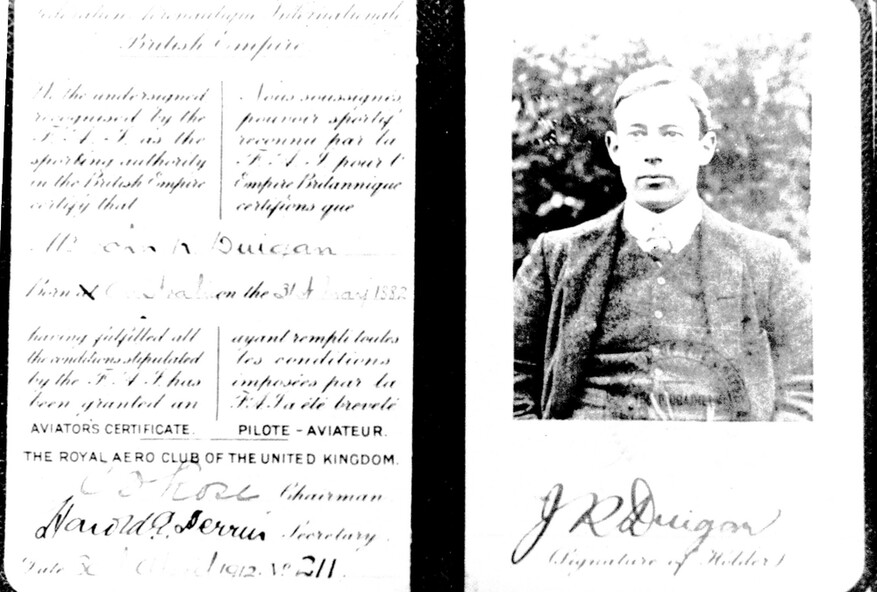 British Empire
We the undersigned
recognised by the
F. A. I. as the
sporting authority
in the British Empire
certify that
Nous soussignés,
pouvoir sportif
reconnu par la
F. A. I pour l'
Empire Britannique
certifions que
Duigan
Born on the 31st May 1882
having fulfilled all
the conditions stipulated
by the F. A. I. has
been granted an
ayant rempli toutes
les conditions
imposées par la
F. A. I a été breveté
AVIATOR'S CERTIFICATE. PILOTE - AVIATEUR.
THE ROYAL AERO CLUB OF THE UNITED KINGDOM.
Rose Chairman
Harold E. Perrin Secretary.
Date 1912. No 211.
J R Duigan
(Signature of Holder)